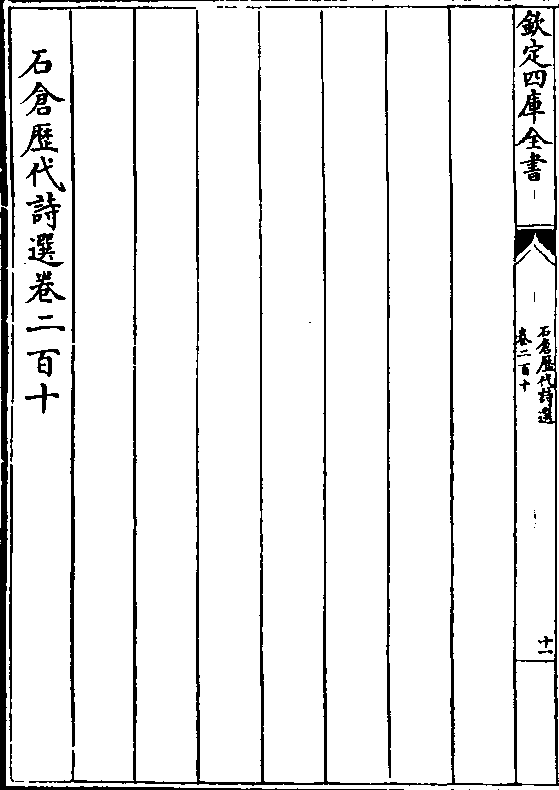 欽定四庫全書
石倉歷代詩選
卷二百十
十一
石倉歷代詩選卷二百十